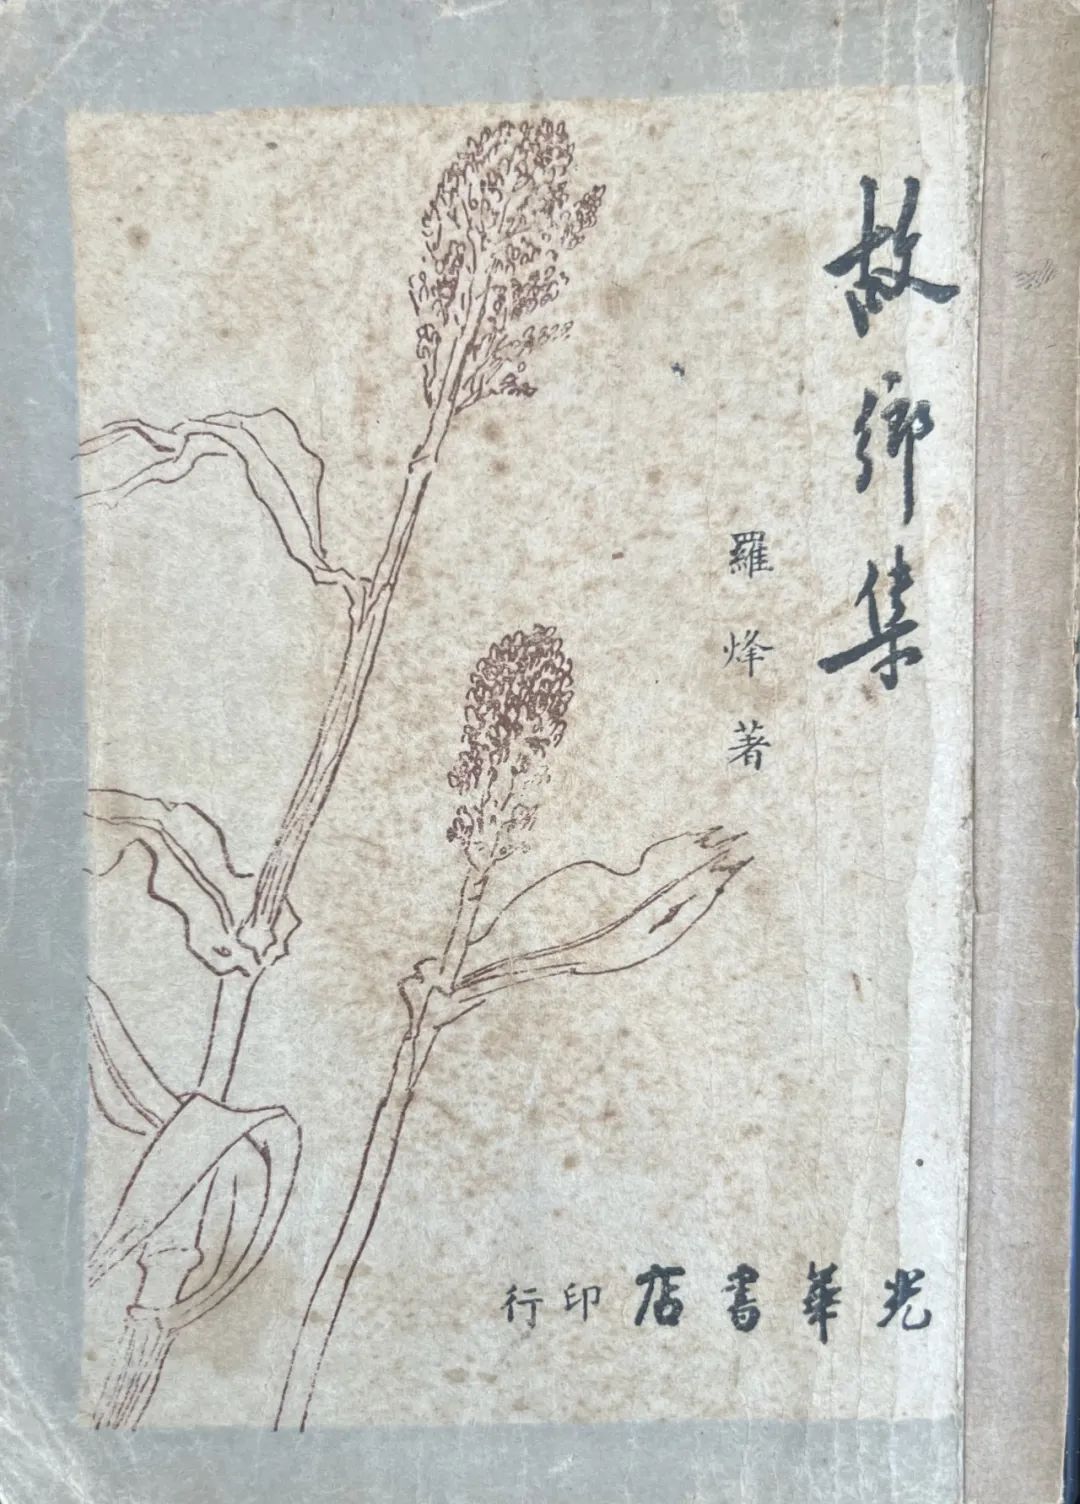 故鄉集
羅烽著
光華書店印行